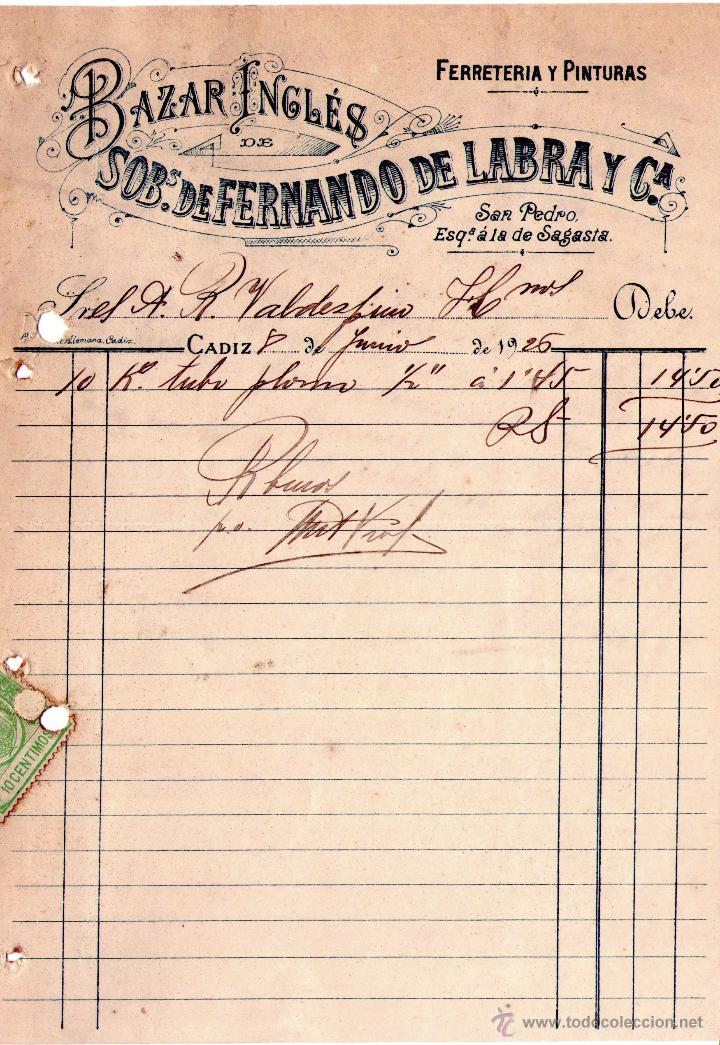 FERRETERIA Y PINTURAS
BAZAR INGLÉS
DE
SOBˢ. DE FERNANDO DE LABRA Y Cª.
San Pedro,
Esqª á la de Sagasta.
Sres A. R. Valdespino y Hnos Debe.
Alemana, Cadiz.
CADIZ 8 de Junio de 1926
10 Kº tubo plomo 1/2" á 1'45 14'50
14'50
Recibimos
p.o.
10 CENTIMOS
www.todocoleccion.net